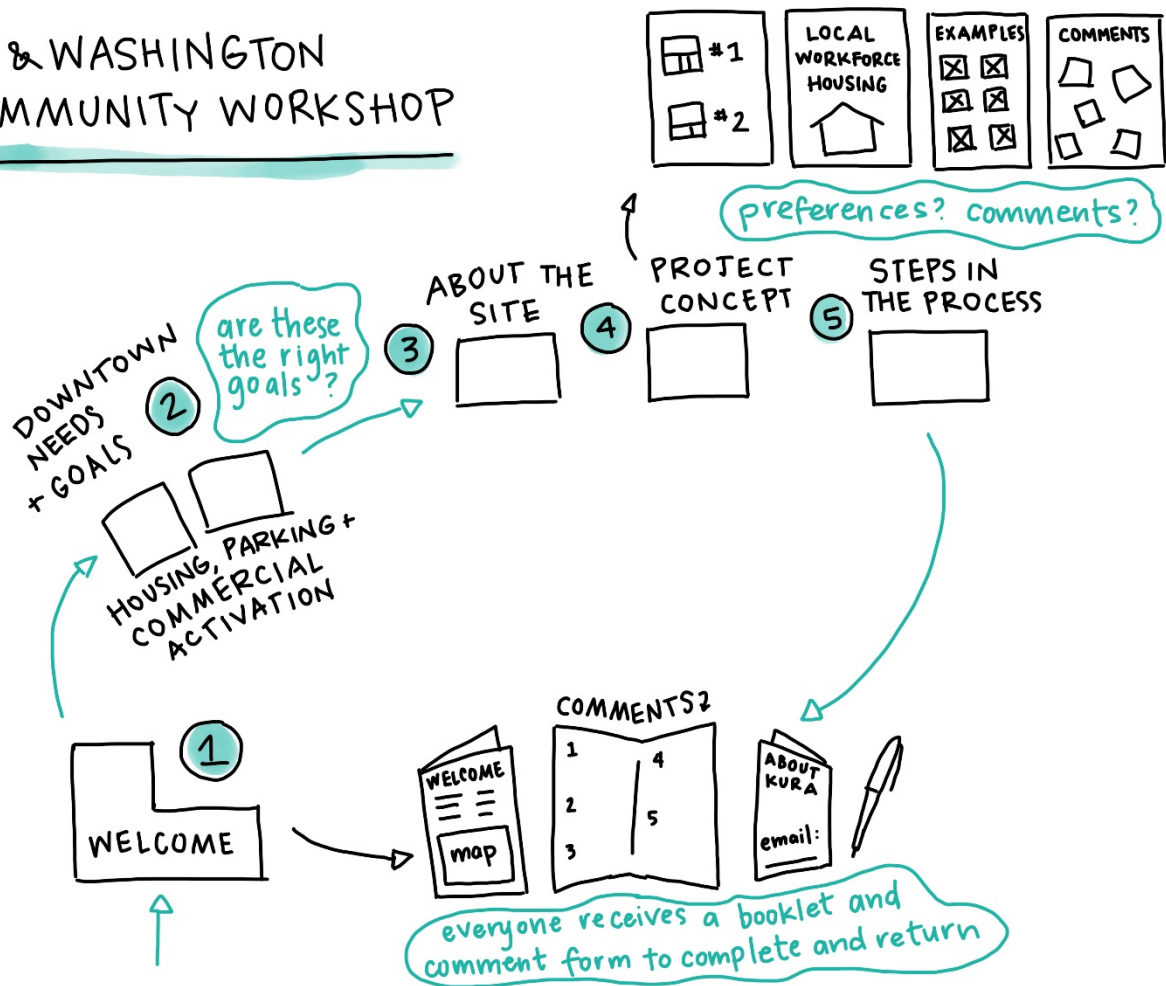 & WASHINGTON
MMUNITY WORKSHOP
#1
#2
LOCAL
WORKFORCE
HOUSING
EXAMPLES
COMMENTS
preferences? comments?
1
WELCOME
2
DOWNTOWN
NEEDS
+ GOALS
are these
the right
goals?
HOUSING, PARKING +
COMMERCIAL
ACTIVATION
3
ABOUT THE
SITE
4
PROJECT
CONCEPT
5
STEPS IN
THE PROCESS
WELCOME
map
COMMENTS?
1
2
3
4
5
ABOUT
KURA
email:
everyone receives a booklet and
comment form to complete and return